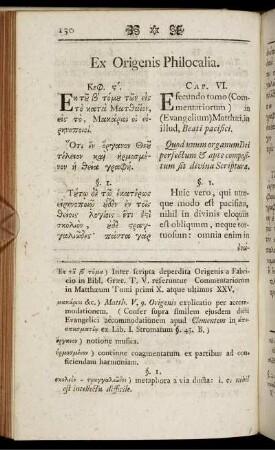 130
Ex Origenis Philocalia.
Κεφ. ϛ'.
Ἐκ τῦ β' τόμῳ τῶν εἰς
τὸ κατὰ Ματθαῖον,
εἰς τὸ, Μακάριοι οἱ εἰ-
ρηνοποιοί.
Ὅτι ἓν ὄργανον Θεῦ
τέλειον καὶ ἡρμοσμέ-
νον ἡ θεία γραφή.
§. 1.
Τύτῳ δὲ τῷ ἑκατέρως
εἰρηνοποιῷ ὐδὲν ἐν τοῖς
θείοις λογίοις ἔτι ἐςὶ
σκολιὸν, ὐδὲ ςραγ-
γαλιῶδες· πάντα γὰρ
ἐνώ-
CAP. VI.
E secundo tomo (Com-
mentariorum) in
(Evangelium) Matthæi, in
illud, Beati pacifici.
Quod unum organum Dei
perfectum & apte composi-
tum sit divina Scriptura.
§. 1.
Huic vero, qui utro-
que modo est pacificus,
nihil in divinis eloquiis
est obliquum, neque tor-
tuosum: omnia enim in-
Ἐκ τῦ β' τόμῳ) Inter scripta deperdita Origenis a Fabri-
cio in Bibl. Græc. T. V. referuntur Commentariorum
in Matthæum Tomi primi X. atque ultimus XXV,
μακάριοι &c.) Matth. V, 9. Origenis explicatio per accom-
modationem. (Confer supra similem ejusdem dicti
Evangelici accommodationem apud Clementem in ἀπ-
Lib. I. Stromatum §. 45. B.)
ὄργανον) notione musica.
ἡρμοσμένον) continue coagmentatum ex partibus ad con-
sciendam harmoniam.
§. 1.
σκολιὸν - ςραγγαλιῶδες) metaphora a via ducta: i. e. nihil
est intellectu difficile.